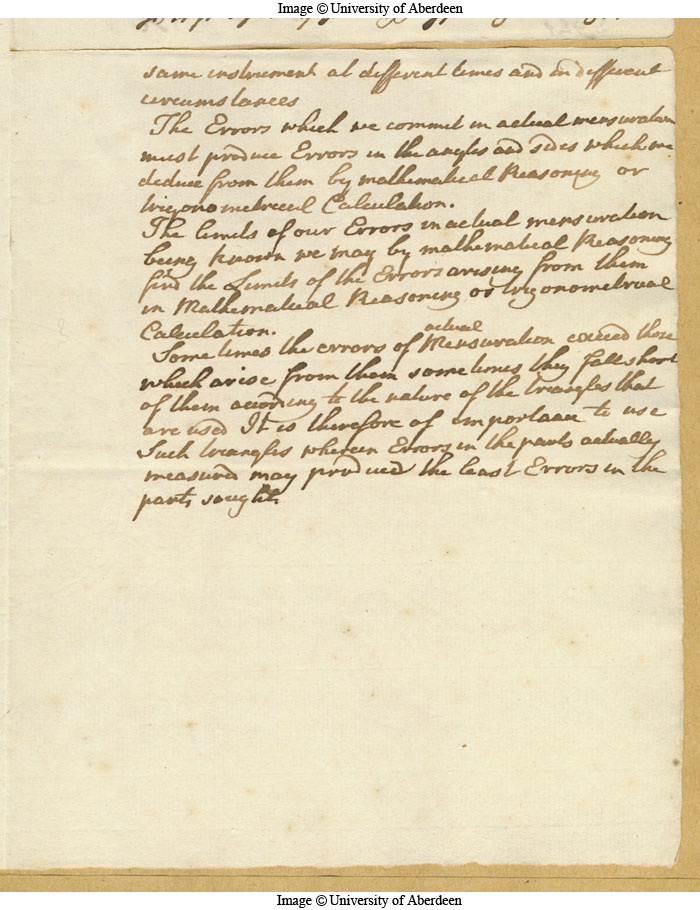 Image © University of Aberdeen
same instrument at different times and in different
circumstances
The Errors which we commit in actual mensuration
must produce Errors in the angles and sides which we
deduce from them by mathematical Reasoning or
trigonometrical Calculation.
The limits of our Errors in actual mensuration
being known we may by mathematical Reasoning
find the Limits of the Errors arising from them
in Mathematical Reasoning or trigonometrical
Calculation.
actual
Sometimes the errors of Mensuration exceed those
which arise from them sometimes they fall short
of them according to the nature of the triangles that
are used It is therefore of importance to use
Such triangles wherein Errors in the parts actually
measured may produced the least Errors in the
parts sought.
Image © University of Aberdeen